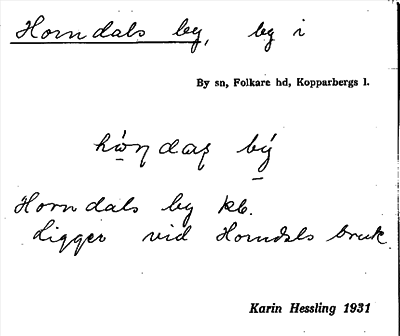 Horndals by, by i
By sn, Folkare hd, Kopparbergs l.
bý
Horndals by kb.
Ligger vid Horndals bruk
Karin Hessling 1931